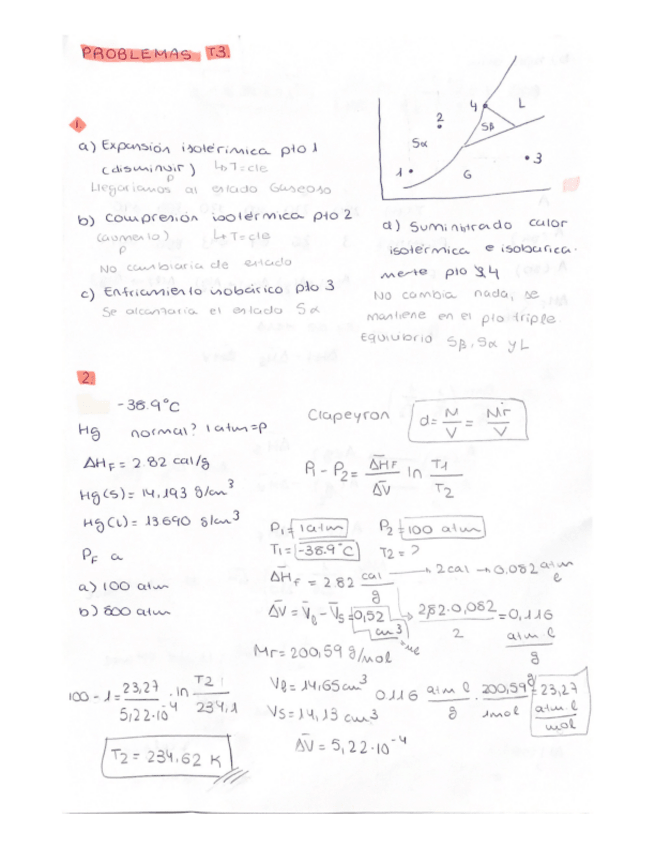 PROBLEMAS T3.
1.
a) Expansión isotérmica pto 1
(disminuir) ↳T=cte
P
Llegaríamos al estado Gaseoso
b) Compresión isotérmica pto 2
(aumento) ↳T=cte
P
No cambiaría de estado
c) Enfriamiento isobárico pto 3
Se alcanzaría el estado Sα
4 L
2 Sβ
Sα
1 3
G
d) Suministrado calor
isotérmica e isobárica-
mente pto 4
No cambia nada, se
mantiene en el pto triple.
Equilibrio Sβ, Sα y L
2.
-38.9°C
Hg normal? 1atm=P
ΔHF = 2.82 cal/g
Hg(s) = 14,193 g/cm³
Hg(L) = 13690 g/cm³
PF a
a) 100 atm
b) 500 atm
Clapeyron d = M/V = Mr/V
P1 - P2 = ΔHF/ΔV ln T1/T2
P1 = 1atm P2 = 100 atm
T1 = -38.9°C T2 = ?
ΔHF = 2.82 cal/g → 2cal → 0.082 atm l
ΔV = Vl - Vs = 0,52 cm³/mol 2,82·0,082/2 = 0,116 atm l/g
Mr = 200,59 g/mol
Vl = 14,65 cm³ 0.116 atm l/g · 200,59g/1mol = 23,27 atm l/mol
Vs = 14,13 cm³
ΔV = 5,22·10⁻⁴
100 - 1 = 23,27/5,22·10⁻⁴ · ln T2/234,1
T2 = 234.62 K